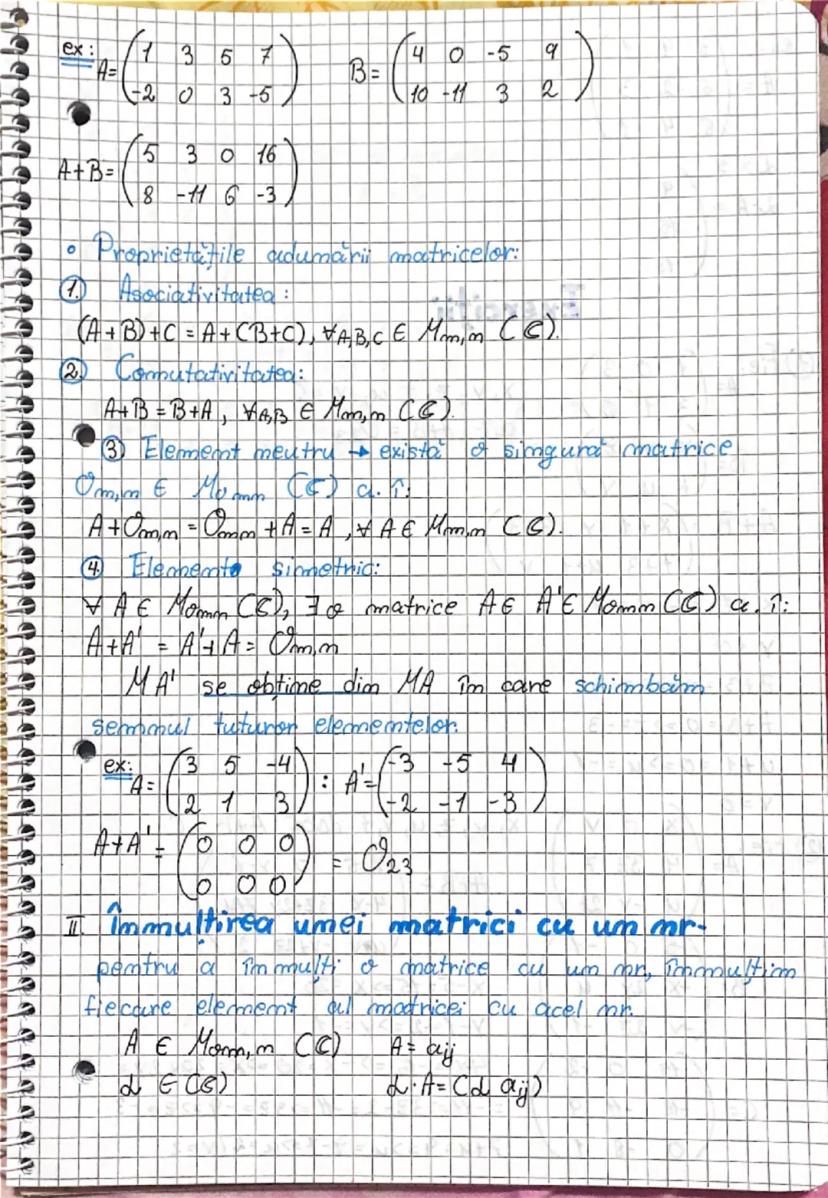 ex: A=(1 3 5 7 B=(4 0 -5 9
-2 0 3 -5) 10 -11 3 2)
A+B=(5 3 0 16
8 -11 6 -3)
• Proprietățile adunării matricelor:
1. Asociativitatea:
(A+B)+C = A+(B+C), ∀A,B,C ∈ Mm,n (C).
2. Comutativitatea:
A+B=B+A, ∀A,B ∈ Mm,n (C).
3 Element neutru → există o singură matrice
Om,n ∈ Mm,n (C) a. î:
A+Om,n = Om,n + A = A, ∀ A ∈ Mm,n (C).
4. Element simetric:
∀ A ∈ Mm,n (C), ∃ o matrice A∈ A'∈ Mm,n (C) a. î:
A+A' = A'+A = Om,n
MA' se obține din MA în care schimbăm
semnul tuturor elementelor.
ex: A=(3 5 -4 : A'=(-3 -5 4
2 1 3) -2 -1 -3)
A+A'=(0 0 0
0 0 0) = O23
II. Înmulțirea unei matrici cu un nr-
pentru a înmulți o matrice cu un nr, înmulțim
fiecare element al matricei cu acel nr.
A ∈ Mm,n (C) A= aij
α ∈ (C) α·A=(α aij)